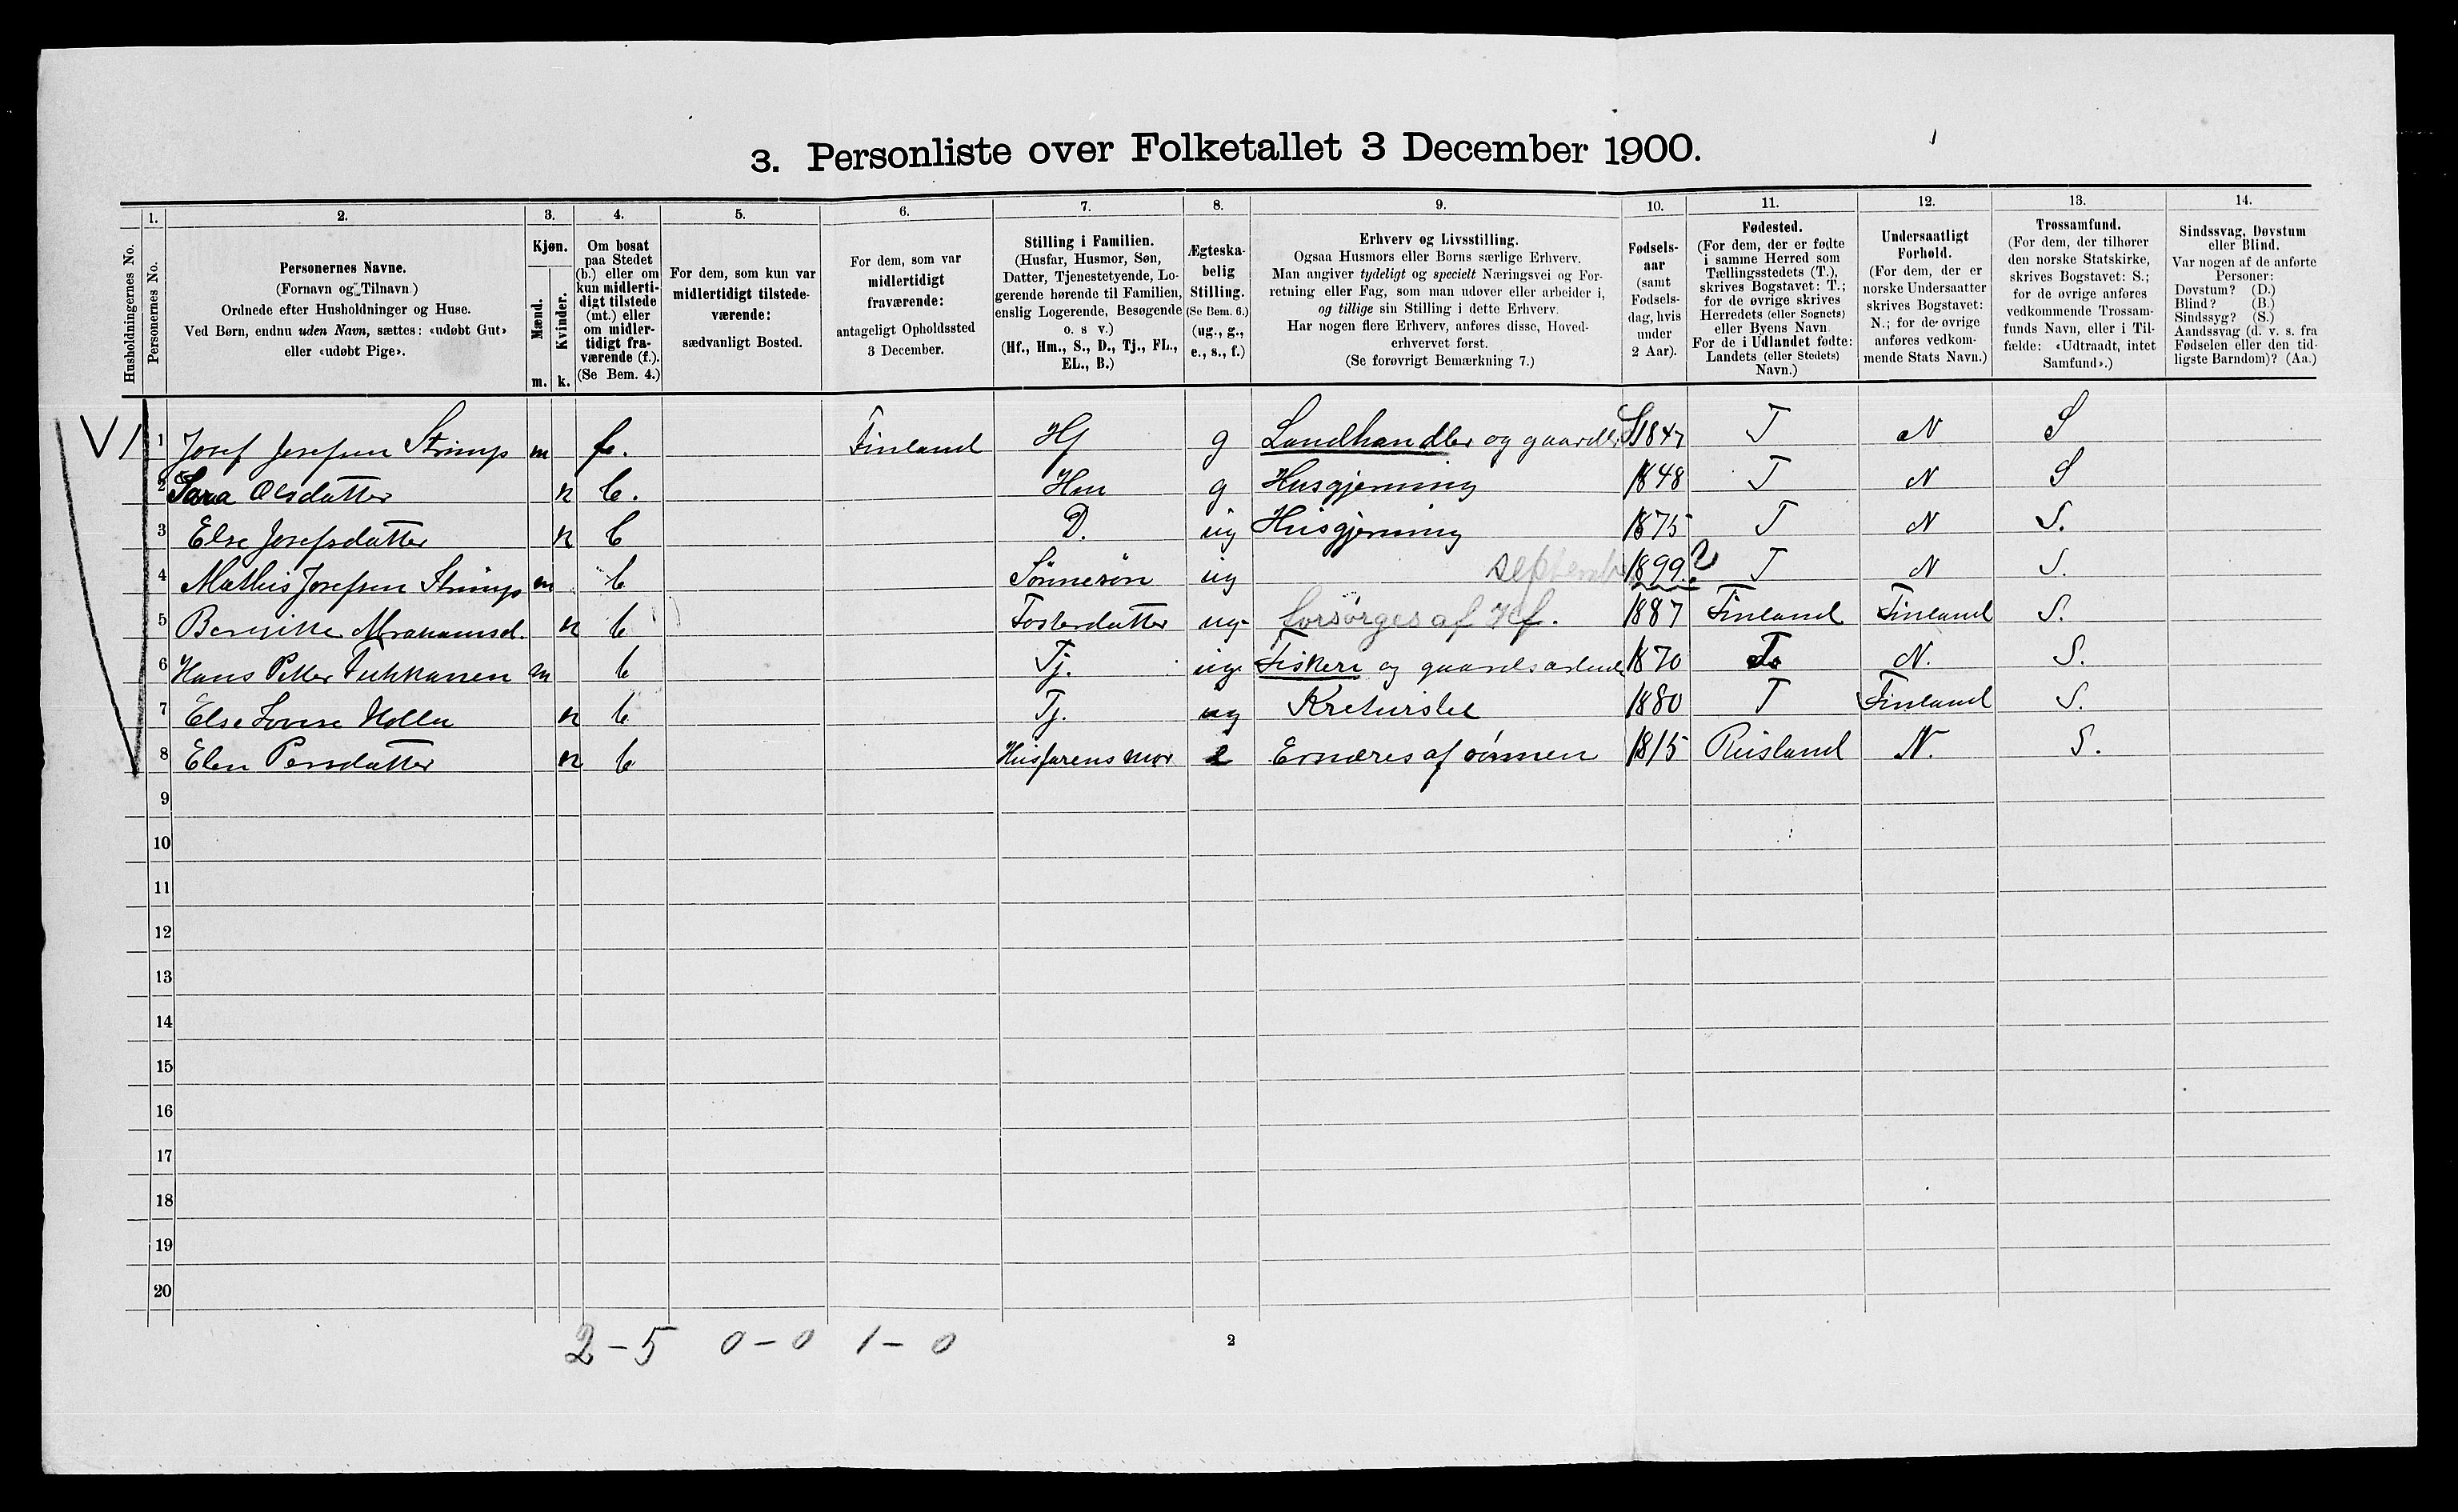 3. Personliste over Folketallet 3 December 1900.
1. 2. 3. 4. 5. 6. 7. 8. 9. 10. 11. 12. 13. 14.
Husholdningernes No.
Personernes No.
Personernes Navne.
(Fornavn og Tilnavn)
Ordnede efter Husholdninger og Huse.
Ved Børn, endnu uden Navn, sættes: «udøbt Gut»
eller «udøbt Pige».
Kjøn.
Mænd.
Kvinder.
m. k.
Om bosat
paa Stedet
(b.) eller om
kun midlerti-
digt tilstede
(mt.) eller
om midler-
tidigt fra-
værende (f.).
(Se Bem. 4.)
For dem, som kun var
midlertidigt tilstede-
værende:
sædvanligt Bosted.
For dem, som var
midlertidigt
fraværende:
antageligt Opholdssted
3 December.
Stilling i Familien.
(Husfar, Husmor, Søn,
Datter, Tjenestetyende, Lo-
gerende hørende til Familien,
enslig Logerende, Besøgende
o. s v.)
(Hf., Hm., S., D., Tj., FL.,
EL., B.)
Ægteska-
belig
Stilling.
(Se Bem. 6.)
(ug., g.,
e., s., f.)
Erhverv og Livsstilling.
Ogsaa Husmors eller Børns særlige Erhverv.
Man angiver tydeligt og specielt Næringsvei og For-
retning eller Fag, som man udøver eller arbeider i,
og tillige sin Stilling i dette Erhverv.
Har nogen flere Erhverv, anføres disse, Hoved-
erhvervet først.
(Se forøvrigt Bemærkning 7.)
Fødsels-
aar
(samt
Fødsels-
dag, hvis
under
2 Aar).
Fødested.
(For dem, der er fødte
i samme Herred som
Tællingsstedets (T.),
skrives Bogstavet: T.;
for de øvrige skrives
Herredets (eller Sognets)
eller Byens Navn
For de i Udlandet fødte:
Landets (eller Stedets)
Navn.)
Undersaatligt
Forhold.
(For dem, der er
norske Undersaatter
skrives Bogstavet:
N.; for de øvrige
anføres vedkom-
mende Stats Navn.)
Trossamfund.
(For dem, der tilhører
den norske Statskirke,
skrives Bogstavet: S.;
for de øvrige anføres
vedkommende Trossam-
funds Navn, eller i Til-
fælde: «Udtraadt, intet
Samfund».)
Sindssvag, Døvstum
eller Blind.
Var nogen af de anførte
Personer:
Døvstum? (D.)
Blind? (B.)
Sindssyg? (S.)
Aandssvag (d. v. s. fra
Fødselen eller den tid-
ligste Barndom)? (Aa.)
1 Josef Josefsen m f. Finland Hf g Landhandler og 1847 T N S
2 Sara Olsdatter k b. Hm g Husgjerning 1848 T N S
3 Else Josefsdatter k b D. ug Husgjerning 1875 T N S.
4 Mathis Josefsen m b Sønnesøn ug september 1899 ? T N S.
5 k b Fosterdatter ug. forsørges af Hf. 1887 Finland Finland S.
6 Hans Petter m b Tj. ug. Fiskeri og 1870 N. S.
7 Else Lovise k b Tj. ug Kreturstel 1880 T Finland S.
8 Elen Persdatter k b Husfarens mor e Ernæres af sønnen 1815 Rusland N. S.
9
10
11
12
13
14
15
16
17
18
19
20
2 – 5 0 – 0 1 – 0
2